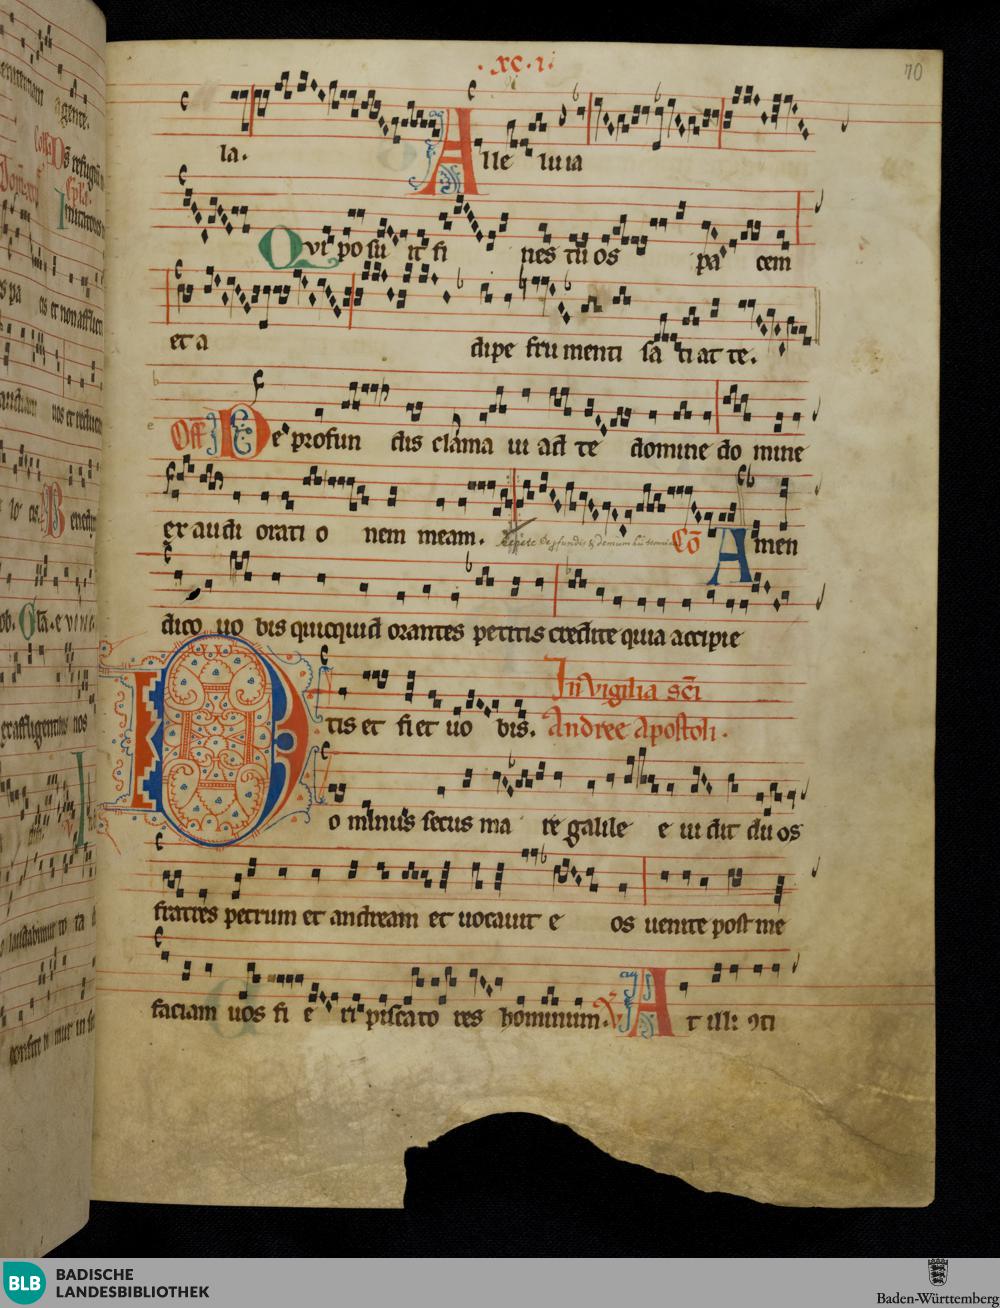 .xc.i.
70
la. Alle luia
Qvi posu it fi nes tuos pa cem
et a dipe frumenti sa ti at te.
Off De profun dis clama ui ad te domine do mine
exaudi orati o nem meam. Cō Amen
dico uo bis quicquid orantes petitis credite quia accipie
tis et fiet uo bis. In vigilia sci
Andree Apostoli.
Dominus secus ma re galile e uidit duos
fratres petrum et andream et uocauit e os uenite post me
faciam uos fi e ri piscato res hominum. V At illi
BLB BADISCHE
LANDESBIBLIOTHEK
Baden-Württemberg